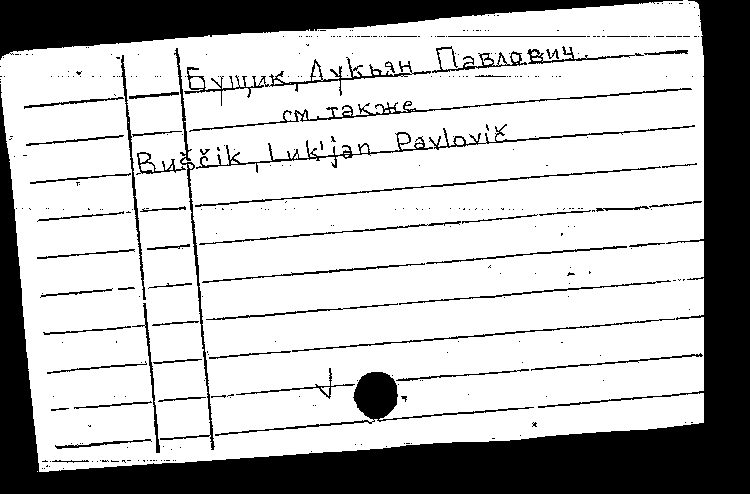 Бущик, Лукьян Павлович.
см. также
Buščik, Luk'jan Pavlovič